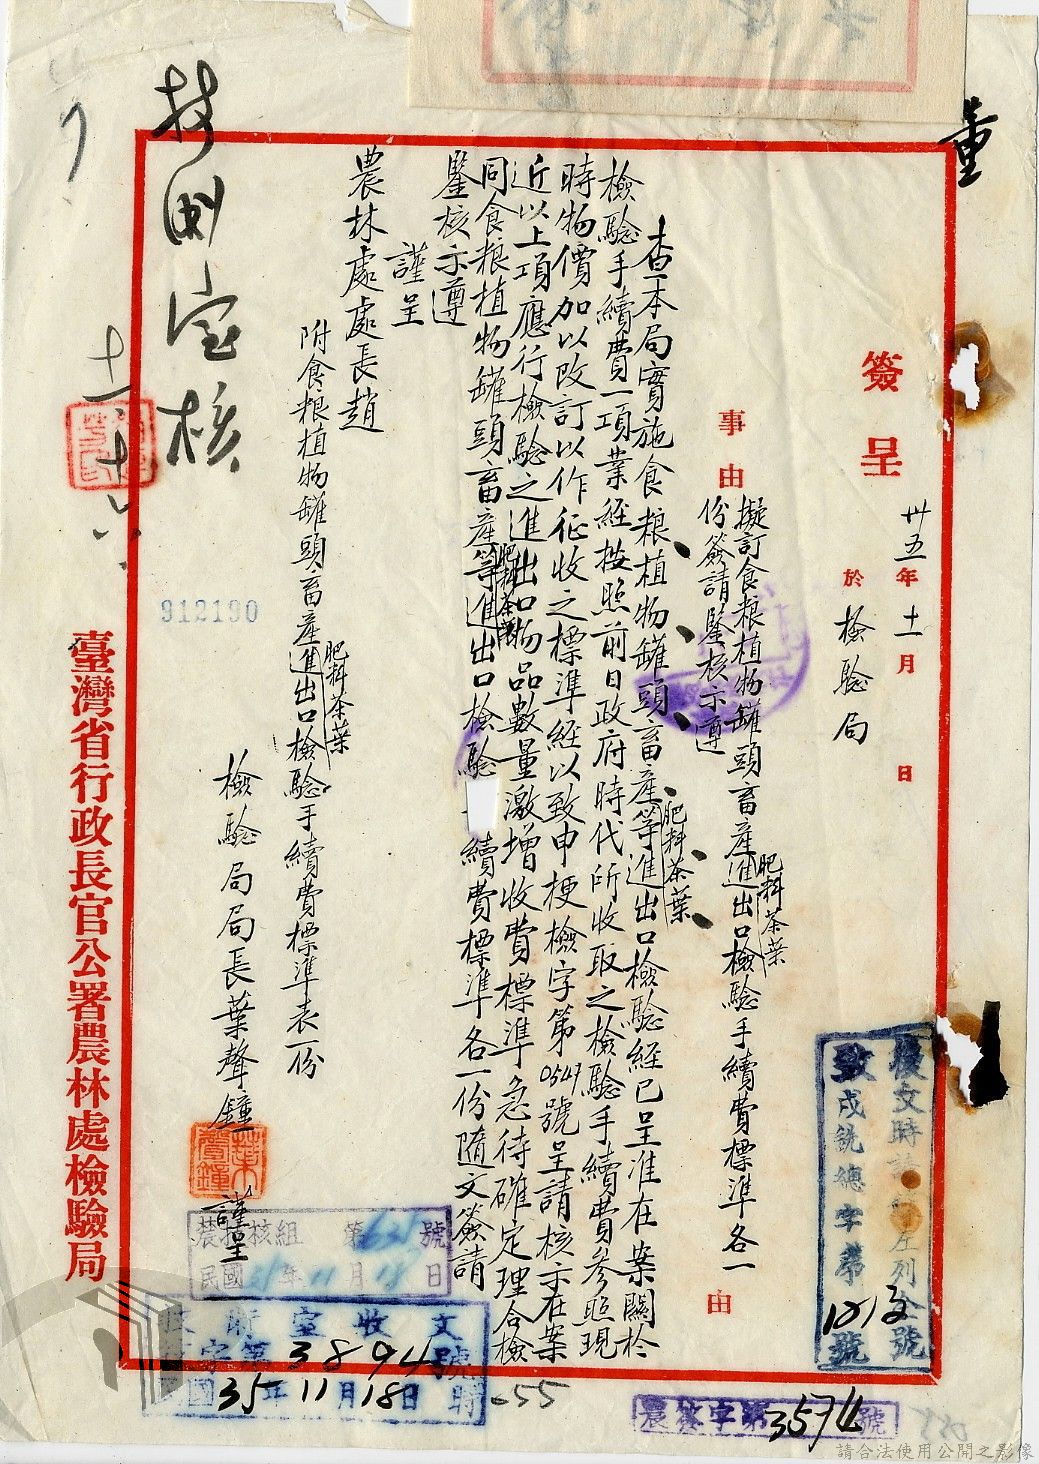 簽呈
卅五年十一月 日
於檢驗局
事由
擬訂食粮植物罐頭畜產肥料茶葉進出口檢驗手續費標準各一
份簽請鑒核示遵
由
查本局實施食粮植物罐頭畜產等肥料茶葉進出口檢驗經已呈准在案關於
檢驗手續費一項業經按照前日政府時代所收取之檢驗手續費參照現
時物價加以改訂以作征收之標準經以致申梗檢字第0547號呈請核示在案
近以上項應行檢驗之進出口物品數量激增收費標準急待確定理合檢
同食粮植物罐頭畜產等肥料茶葉進出口檢驗 續費標準各一份隨文簽請
鑒核示遵
謹呈
農林處處長趙
附食粮植物罐頭畜產肥料茶葉進出口檢驗手續費標準表一份
檢驗局局長葉聲鐘
謹呈
葉聲鐘
臺灣省行政長官公署農林處檢驗局
室核
十一、十六
912190
董
復文時請 左列全號
致戌銑總字第
號
第 號
民國 年11月18日
室收文
字第3894號
國35年11月18日 時
農 字第3574號
請合法使用公開之影像